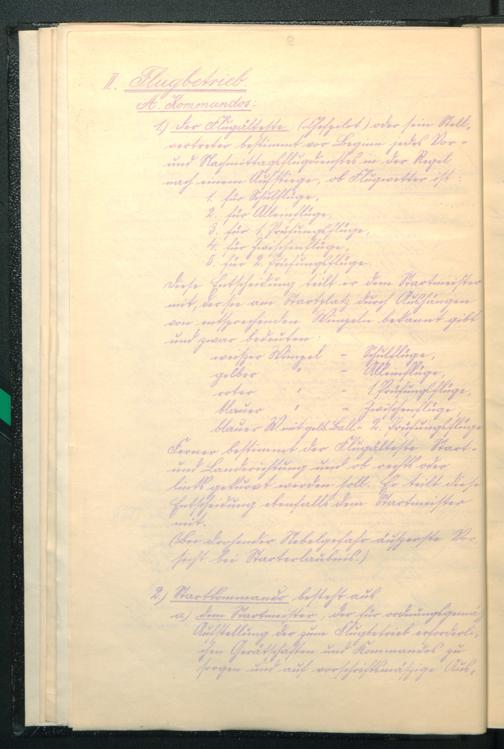 II. Flugbetrieb.
A. Kommandos:
1.) Der Flugälteste (Chefpilot) oder sein Stell-
vertreter bestimmt vor Beginn jedes Vor-
und Nachmittagsflugdienstes in der Regel
nach einem Aufstiege, ob Flugwetter ist:
1. für Schulflüge,
2. für Alleinflüge,
3. für 1. Prüfungsflüge,
4. für Zwischenflüge,
5. für 2. Prüfungsflüge.
Diese Entscheidung teilt er dem Startmeister
mit, der sie am Startplatz durch Aushängen
von entsprechenden Wimpeln bekannt gibt
und zwar bedeuten:
weißer Wimpel - Schulflüge,
gelber " - Alleinflüge,
roter " - 1. Prüfungsflüge,
blauer " - Zwischenflüge,
blauer W. mit gelb. Ball - 2. Prüfungsflüge
Ferner bestimmt der Flugälteste Start-
und Landerichtung und ob rechts oder
links gekurvt werden soll. Er teilt diese
Entscheidung ebenfalls dem Startmeister
mit.
(Bei drohender Nebelgefahr äusserste Vor-
sicht bei Starterlaubnis.)
2.) Startkommando besteht aus
a.) dem Startmeister, der für ordnungsgemä
Aufstellung der zum Flugbetrieb erforderli-
chen Gerätschaften und Kommandos zu
sorgen und auf vorschriftsmässige Aus-